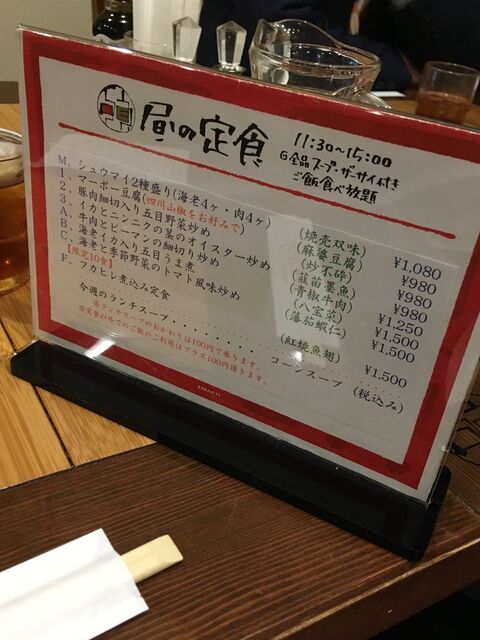 昼の定食
11:30~15:00
全品スープ・ザーサイ付き
ご飯食べ放題
M、シュウマイ2種盛り(海老4ヶ・肉4ヶ) (焼売双味) ¥1,080
1、マーボー豆腐(四川山椒をお好みで) (麻婆豆腐) ¥980
2、豚肉細切入り五目野菜炒め (炒不砕) ¥980
3、イカとニンニクの茎のオイスター炒め (韮苗墨魚) ¥980
A、牛肉とピーマンの細切り炒め (青椒牛肉) ¥1,250
B、海老イカ入り五目うま煮 (八宝菜) ¥1,500
C、海老と季節野菜のトマト風味炒め (蕃茄蝦仁) ¥1,500
【限定10食】
F、フカヒレ煮込み定食 (紅焼魚翅) ¥1,500
今週のランチスープ・・・・・・・コーンスープ (税込み)
※ランチスープのおかわりは100円で承ります。
※定食以外でのご飯のご利用はプラス100円頂きます。